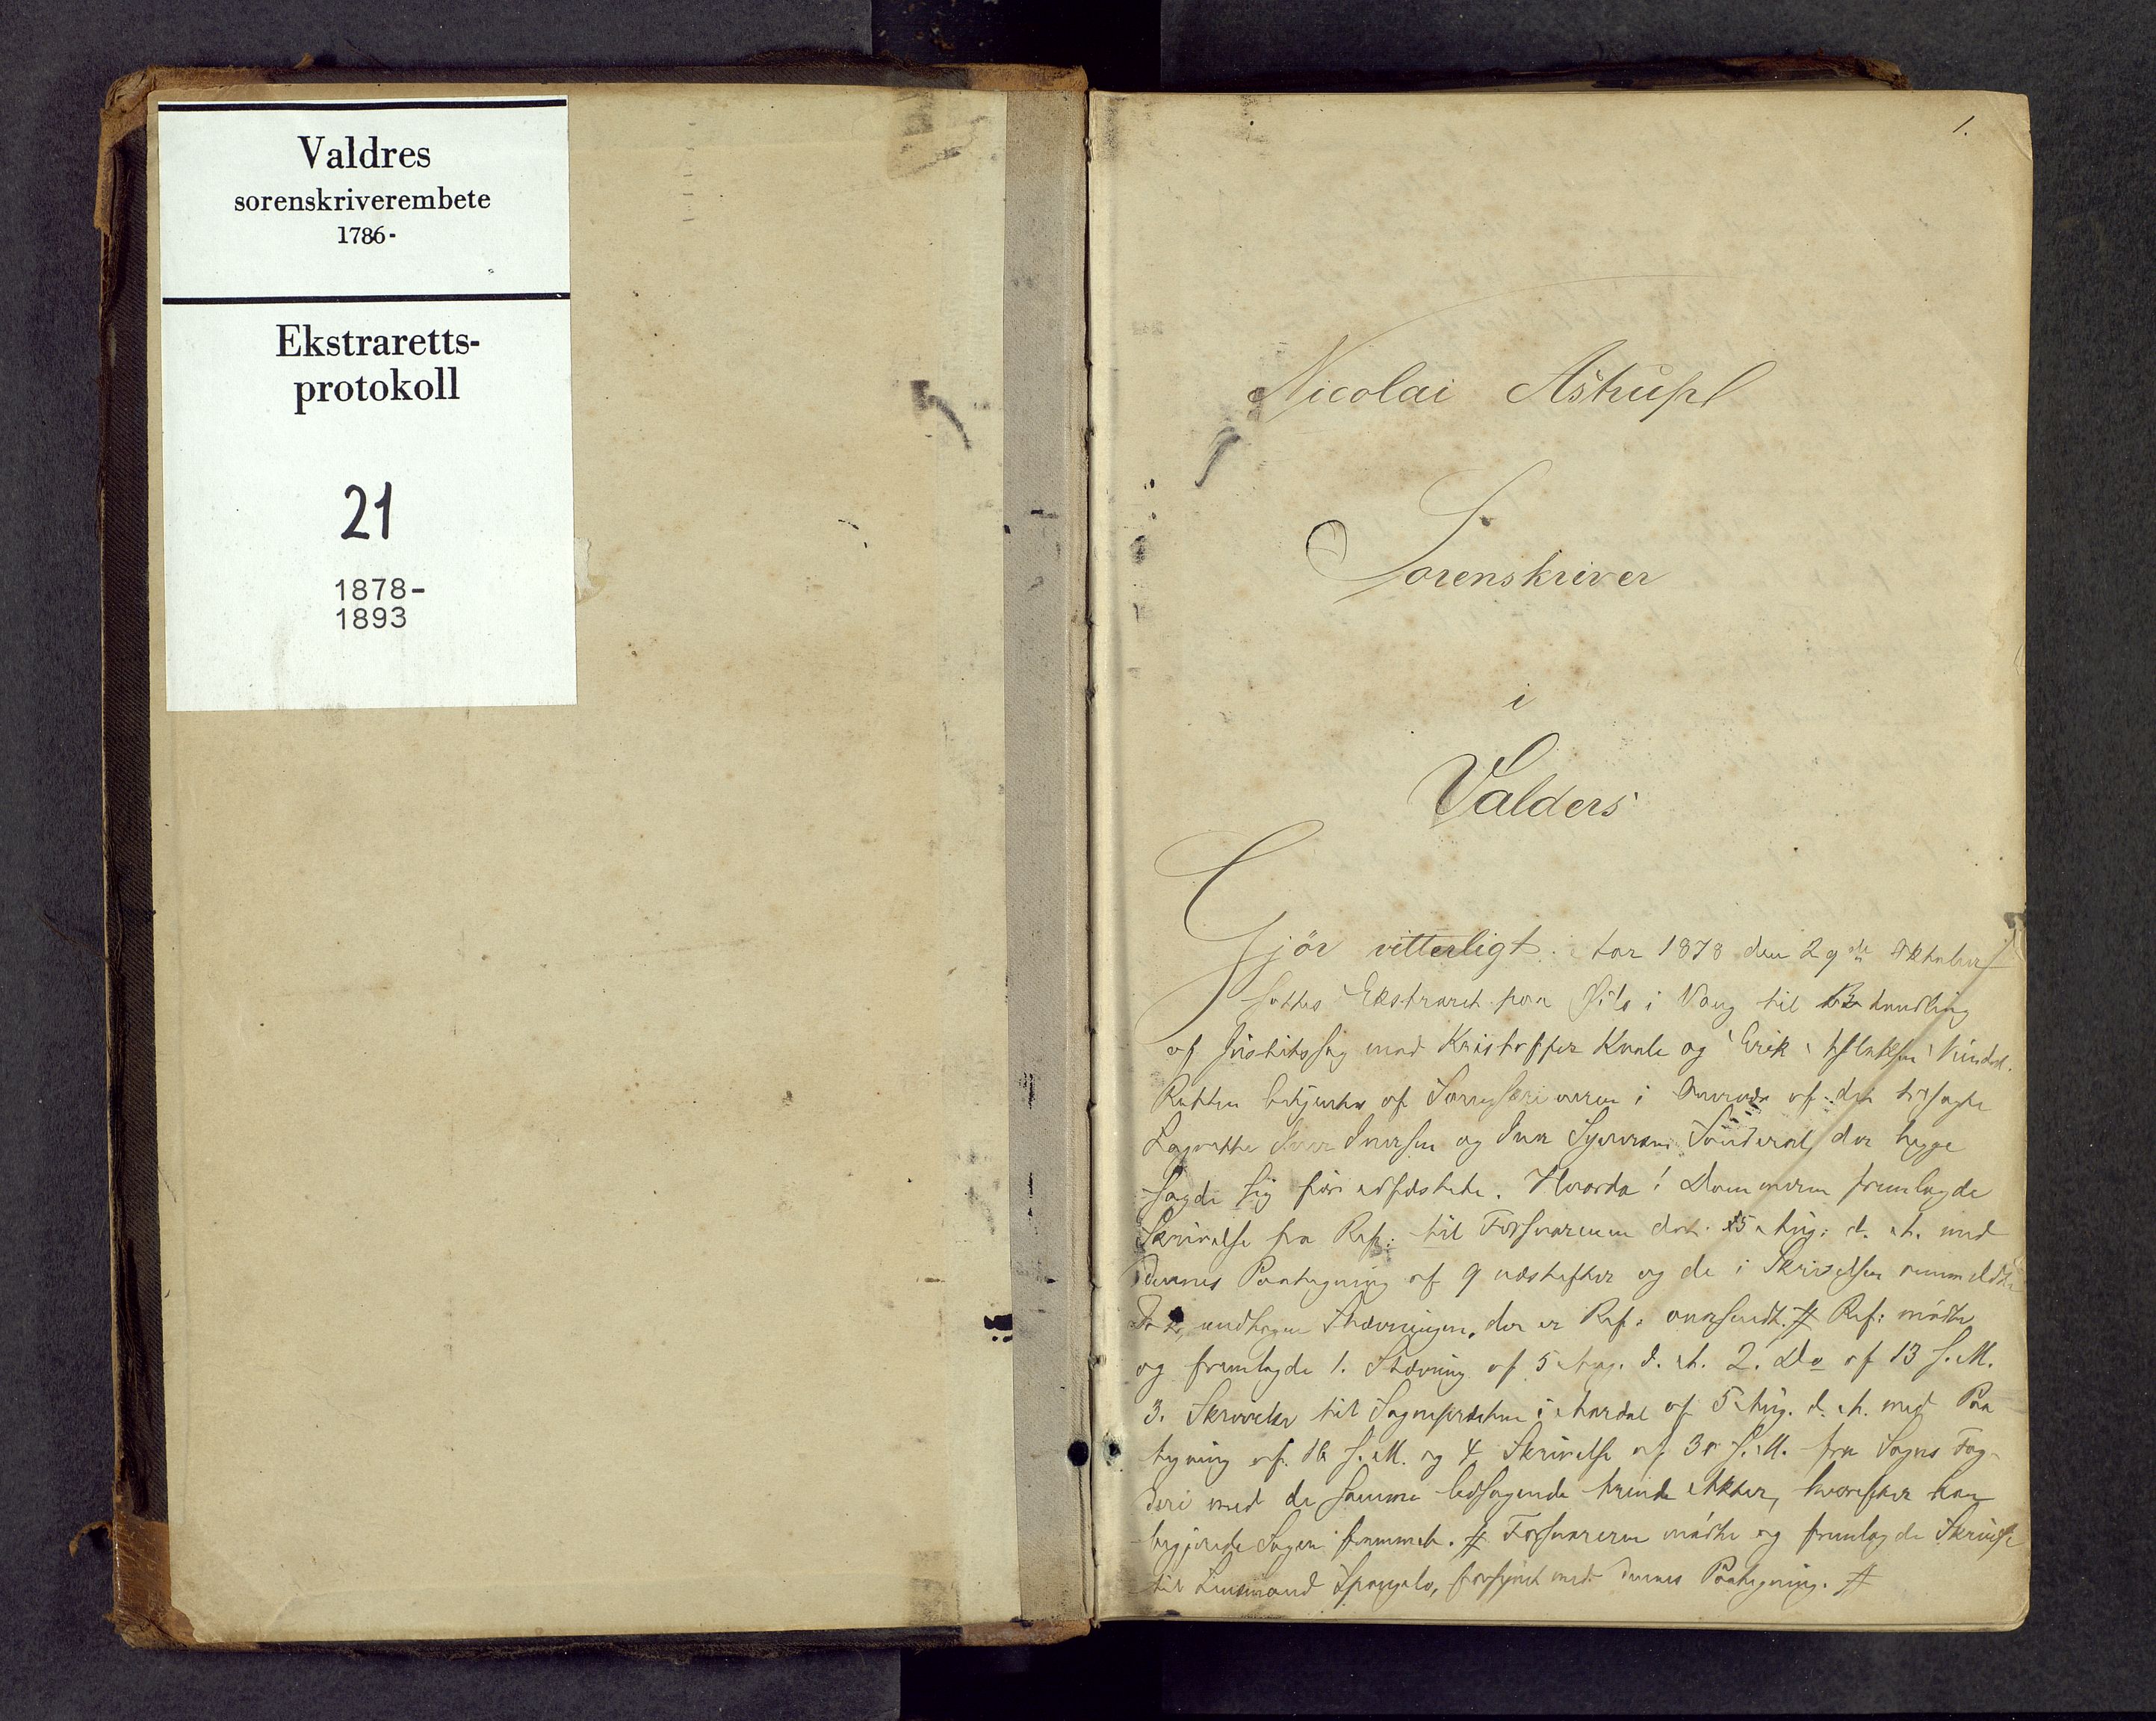 Valdres
sorenskriverembete
1786-
Ekstraretts-
protokoll
21
1878-
1893
1.
Nicolai Astrup
Sorenskriver
i
Valders
Gjör vitterligt: Aar 1878 den 29de Oktober
sattes Extraret paa Öilo i Vang til Behandling
af Justitssag mod Kristoffer Kvale og Erik
Retten betjentes af Sorenskriveren i Overvær af de tilsagte
Lagrette Iver Iversen og Sönderaal der begge
sagde sig før edfæstede. Hvorda! Dommeren fremlagde
Skrivelse fra Ref: til Forsvareren dat. 15 Aug: d. A. med
dennes Paategning af 9 næstefter og de i Skrivelsen ommeldte
undtagen Stævningen, der er Ref. oversendt. # Ref: mödte
og fremlagde 1. Stævning af 5 Aug. d. A. 2. Do af 13 s. M.
3. Skrivelse til i Aardal af 5 Aug. d. A. med Paa
tegning af 16 s. M. og 4 Skrivelse af 30 s. M. fra Sogns Fog-
deri med de samme ledsagende Akter, hvorefter han
begjærede Sagen fremmet. # Forsvareren mödte og fremlagde Skrivelse
til Lensmand Spangelo, forsynet med dennes Paategning. #